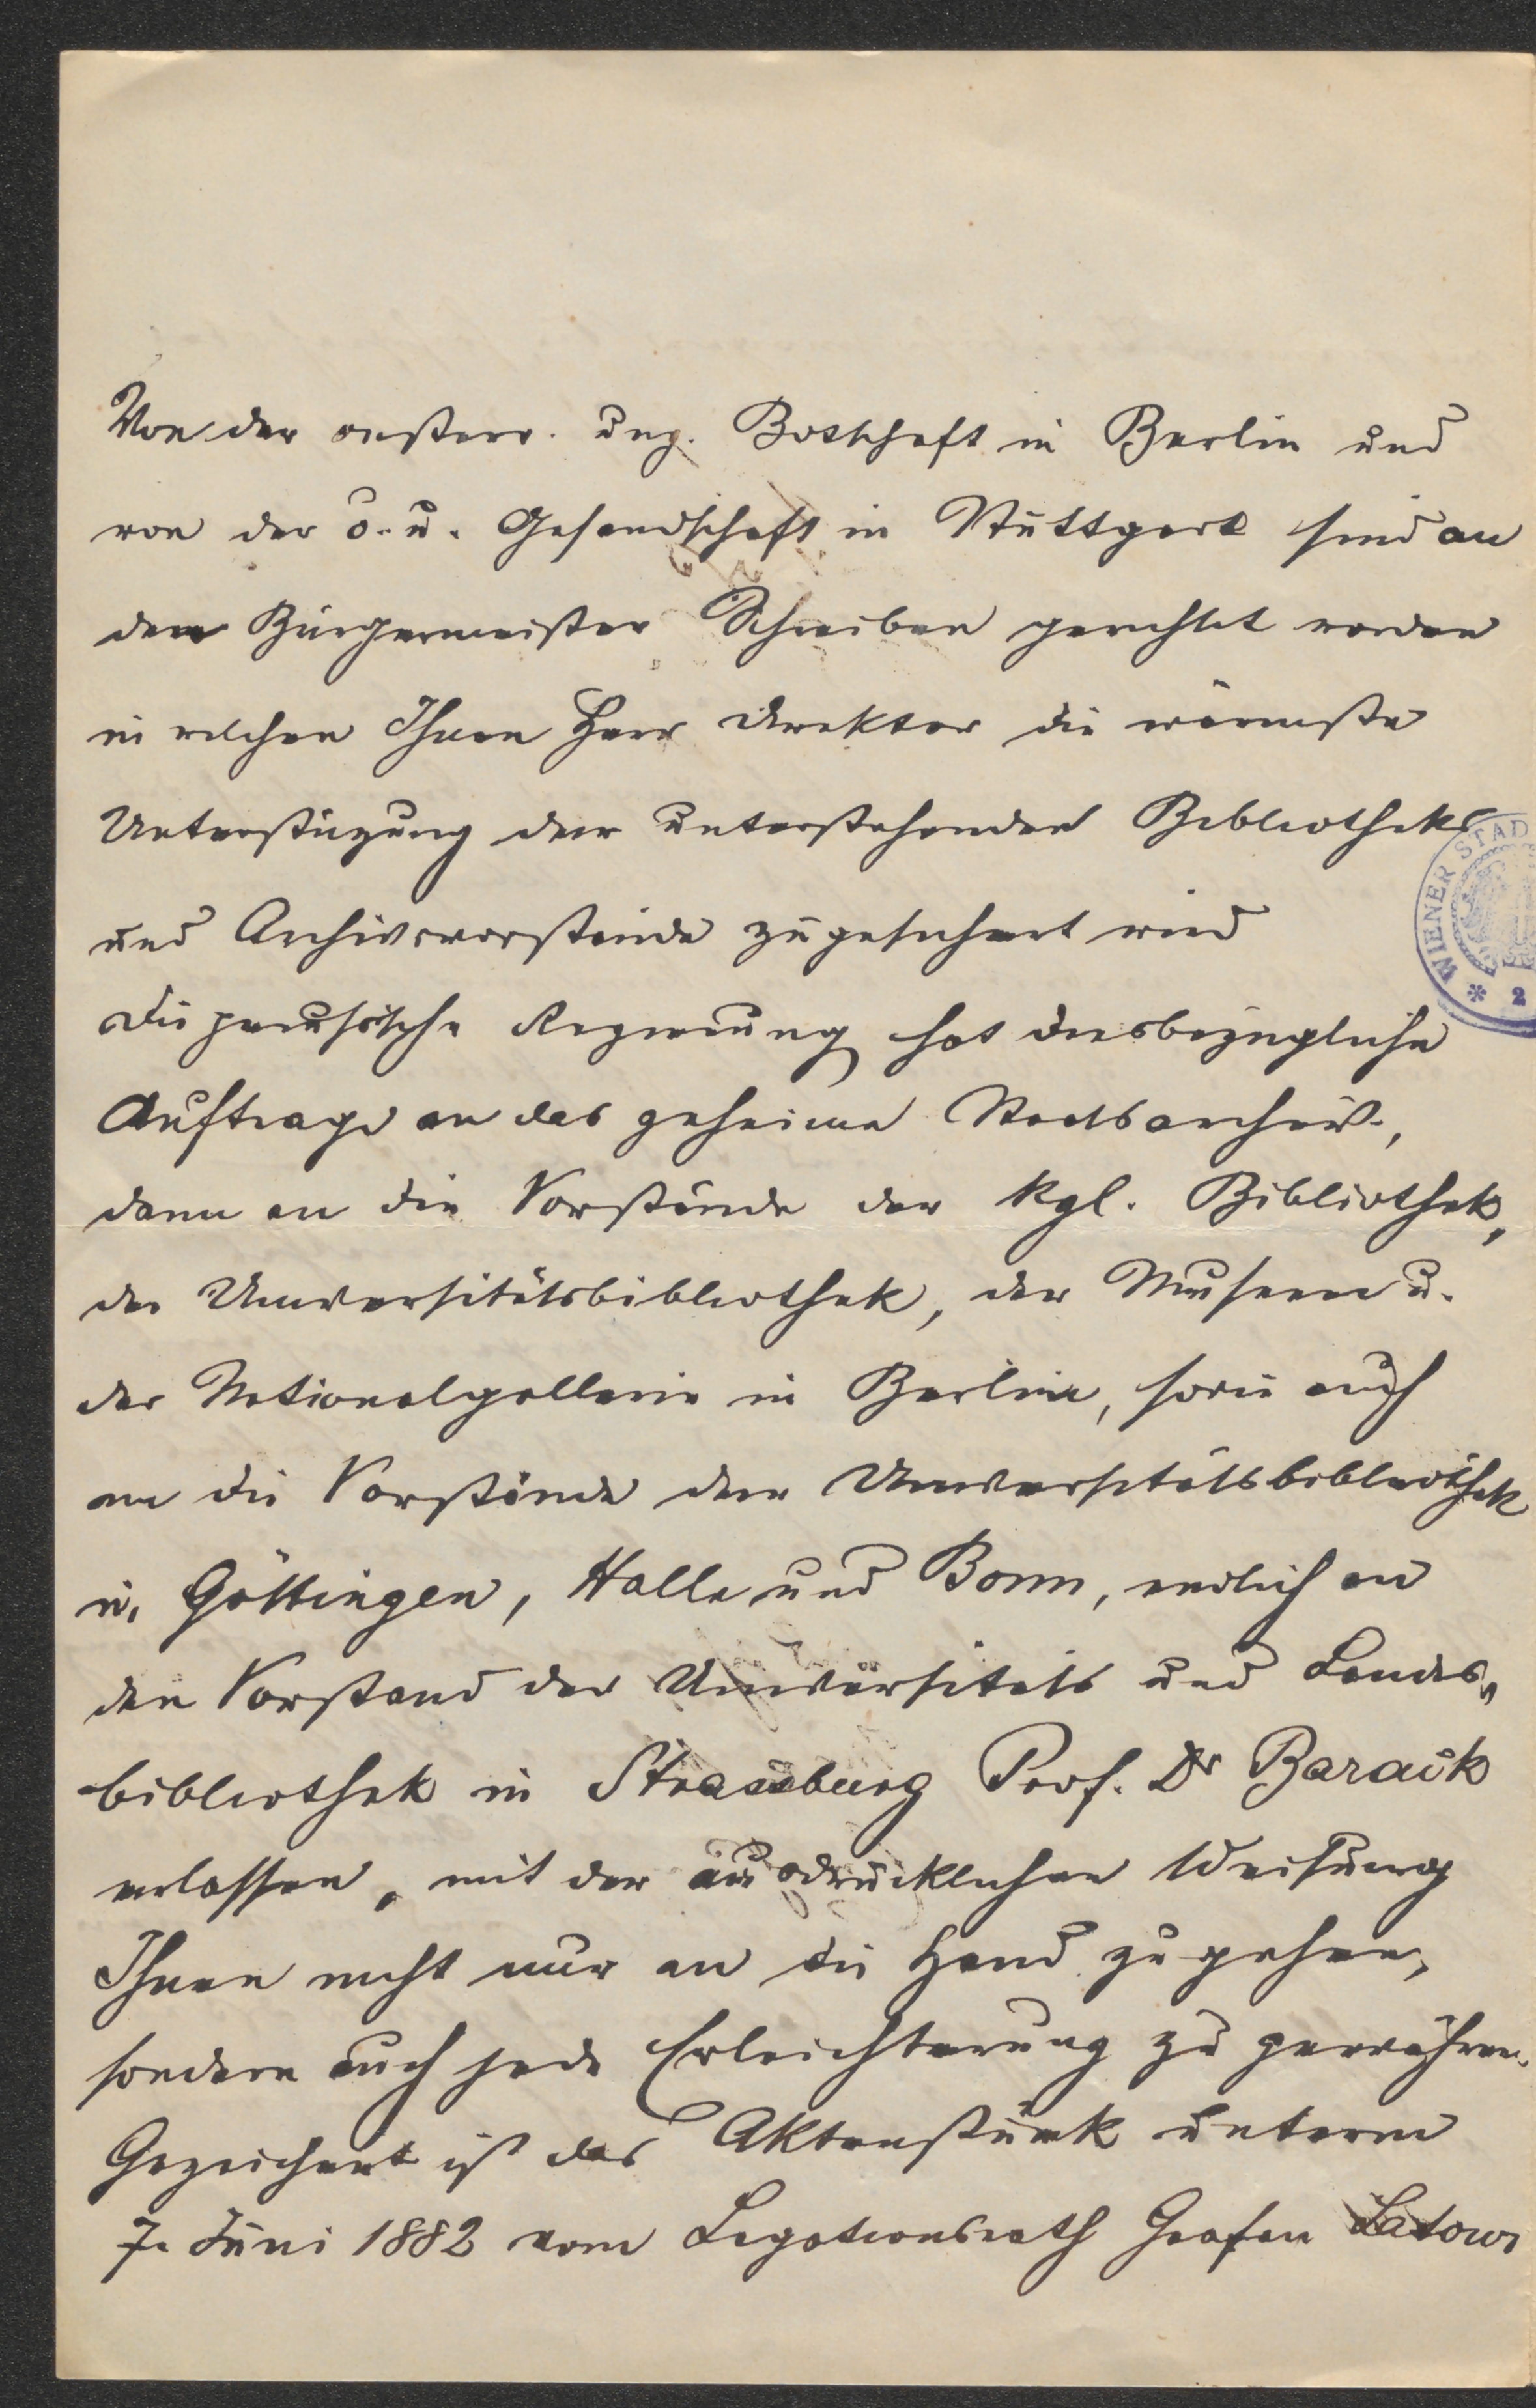 Von der oesterr. ung. Botschaft in Berlin und
von der ö. u. Gesandschaft in Stuttgart sind an
den Bürgermeister Schreiben gerichtet worden
in welchen Ihnen Herr Direktor die wärmste
Unterstüzung der unterstehenden Bibliotheks
und Archivsvorstände zugesichert wird
Die preussische Regierung hat diesbezügliche
Aufträge an das geheime Staatsarchiv,
dann an die Vorstände der kgl. Bibliothek,
der Universitätsbibliothek, der Museen u.
der Nationalgallerie in Berlin, sowie auch
an die Vorstände der Universitätsbibliothek
in Göttingen, Halle und Bonn, endlich an
den Vorstand der Universitäts und Landes„
bibliothek in Strassburg Prof. Dr Barack
erlassen, mit der ausdrücklichen Weisung
Ihnen nicht nur an die Hand zu gehen,
sondern auch jede Erleichterung zu gewähren.
Gezeichnet ist das Aktenstück unterm
7. Juni 1882 vom Legationsrath Grafen Latour
WIENER STAD
* 2